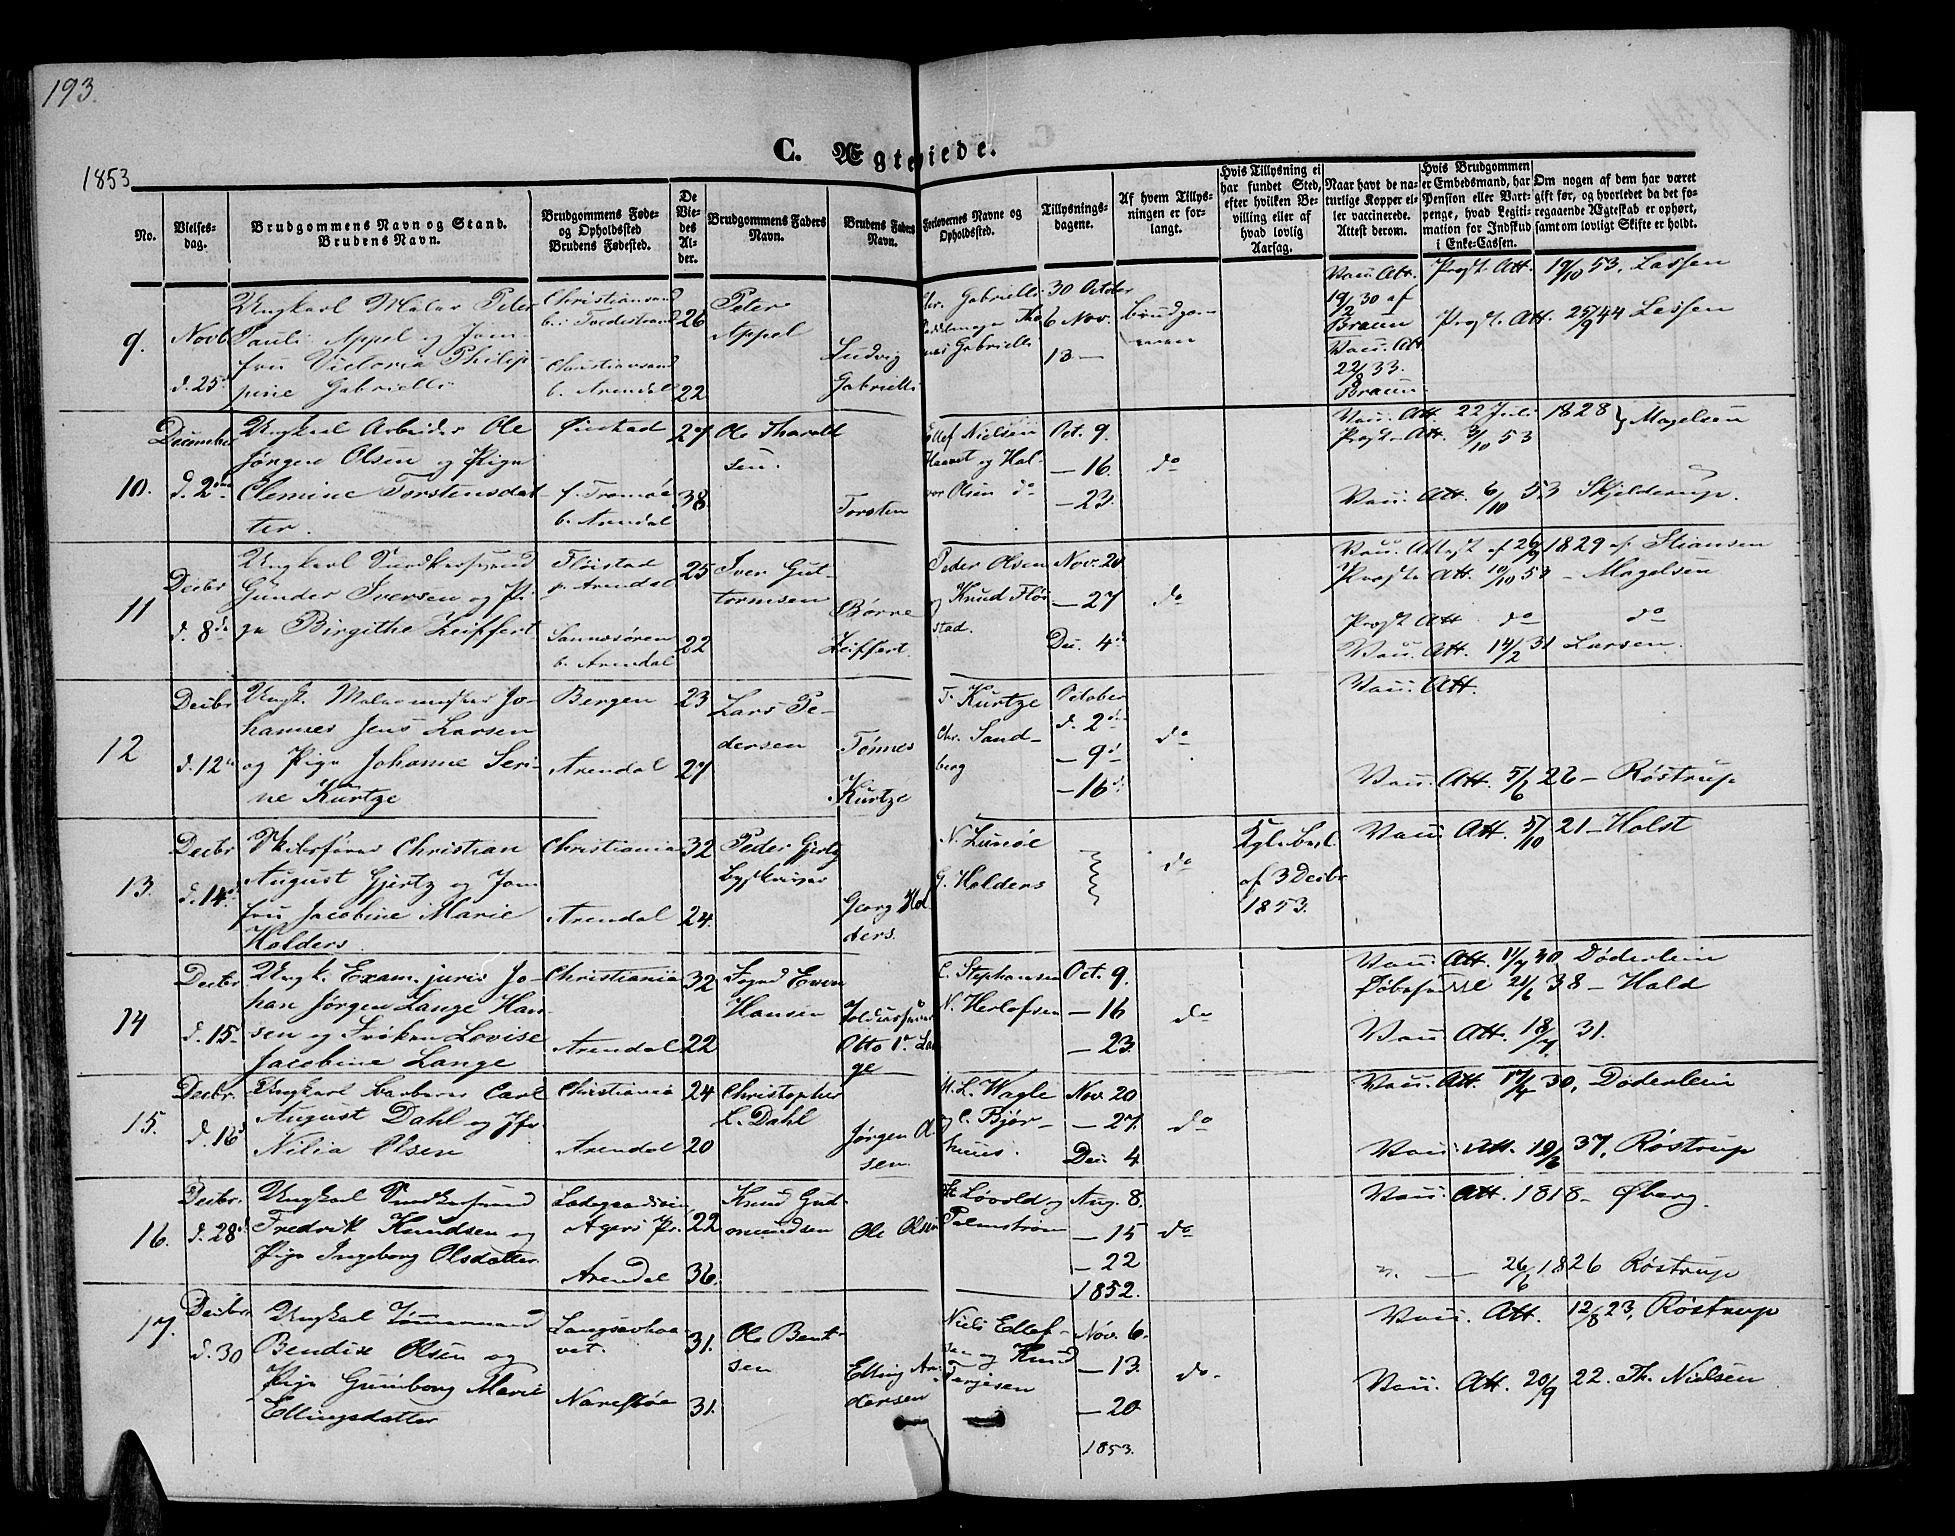 193.
C. Ægteviede.
1853
No.
Vielses-
dag.
Brudgommens Navn og Stand.
Brudens Navn.
Brudgommens Føde-
og Opholdssted
Brudens Fødested.
De
Vie-
des
Al-
der.
Brudgommens Faders
Navn.
Brudens Faders
Navn.
Forlovernes Navne og
Opholdssted.
Tillysnings-
dagene.
Af hvem Tillys-
ningen er for-
langt.
Hvis Tillysning ei
har fundet Sted,
efter hvilken Be-
villing eller af
hvad lovlig
Aarsag.
Naar havt de na-
turlige Kopper el-
ler vaccinerede.
Attest derom.
Hvis Brudgommen
er Embedsmand, har
Pension eller Vart-
penge, hvad Legiti-
mation for Indskud
i Enke-Cassen.
Om nogen af dem har været
gift før, og hvorledet da det fo-
regaaende Ægteskab er ophørt,
samt om lovligt Skifte er holdt.
9.
Novb
d. 25
Ungkarl Maler Peter
Pauli Appel og Jom-
fru Victoria Philip-
pine Gabrielli
Christiansand
b. Tvedestrand
Christiansand
b. Arendal
26
22
Peter
Appel
Ludvig
Gabrielli
Chr. Gabrielli
Gabrielli
30 October
6 Nov.
13 —
brudgom-
men
Vac. Att.
19/2 30 af
Braun
Vac. Att
22/8 33.
Braun
Prgst. Att. 19/10 53. Lassen
Prgst. Att. 25/9 44 Lassen
10.
December
d. 2
Ungkarl Arbeider Ole
Jørgen Olsen og Pige
Clemine Torstensdat
ter.
Øiestad
f. Tromøe
b. Arendal
27
38
Ole Tharald
sen.
Torsten
Ellef Nielsen
Haavet og Hal-
vor Olsen do
Oct. 9.
— 16.
— 23.
do
Vac. Att 22 Juli 1828 } Magelsen
Prgst. Att. 3/10 53
Vac. Att. 6/10 53 Skjelderup.
11
Decbr
d. 8de
Ungkarl Snedkersvend
Gunder Iversen og Pi-
ge Birgithe Zeiffert
Fløistad
p. Arendal
Sannesøren
b. Arendal
25
22
Iver Gut-
tormsen
Børre
Zeiffert
Peder Olsen
og Knud Fløi
stad.
Nov. 20
— 27
Dec. 4
do
Vac. Att af 26/9 1829 af Stiansen
Prgst. Att. 10/10 53 — Magelsen
Prgst Att do do
Vac. Att. 14/2 31 Larsen.
12
Decbr
d. 12
Ungk. Malermester Jo-
hannes Jens Larsen
og Pige Johanne Seri-
ne Kurtze
Bergen
Arendal
23
27
Lars Pe-
dersen
Tønnes
Kurtze
T. Kurtze
Chr. Sand-
berg
October
d. 2
— 9
— 16
do
Vac. Att.
Vac. Att. 5/6 26 — Røstrup
13.
Decbr
d. 14
Skibsfører Christian
August Gjertz og Jom
fru Jacobine Marie
Holders.
Christiania
Arendal
32
24.
Peder Gjertz
Georg Hol
ders.
N. Lunøe
G. Holders
do
Kgl. Bevl.
af 3 Decbr
1853.
Vac. Att. 5/10 21 — Holst
14
Decbr
d. 15
Ungk. Exam. juris Jo-
han Jørgen Lange Han
sen og Frøken Lovise
Jacobine Lange
Christiania
Arendal
32
22
Foged Even
Hansen
Otto Lan
ge
C. Stephansen
N. Herlofsen
Oct. 9.
— 16
— 23.
do
Vac. Att. 11/7 30 Døderlein
21/6 38 — Hald
Vac. Att. 18/7 31.
15.
Decbr.
d. 16
Ungkarl barberer Carl
August Dahl og Jfr
Nilia Olsen
Christiania
Arendal
24
20
Christopher
L. Dahl
Jørgen Ol
sen.
M. L. Wagle
og C. Bjør-
huus.
Nov. 20
— 27.
Dec. 4
do
Vac. Att. 17/4 30, Døderlein
Vac. Att. 19/6 37. Røstrup
16.
Decbr.
d. 28
Ungkarl Snedkersvend
Fredrik Knudsen og
Pige Ingeborg Olsdatter
Agers Pr.
Arendal
22
36.
Knud Gud
mundsen
Ole Olsen
Løvold og
Palmstrøm
Aug. 8.
— 15
— 22
1852.
do
Vac. Att. 1818 — Øberg
— 26/6 1826 Røstrup
17.
Decbr.
d. 30
Ungkal Tømmermand
Bendix Olsen og
Pige Gunborg Marie
Ellingsdatter
Langsævhaa-
vet.
Narestøe
31.
31.
Ole Bent-
sen
Elling An-
dersen
Niels Ellef-
sen og Knud
Terjesen
Nov. 6.
— 13.
— 20
1853.
do.
Vac. Att. 12/8 23, Røstrup
Vac. Att. 20/9 22. Th. Nielsen